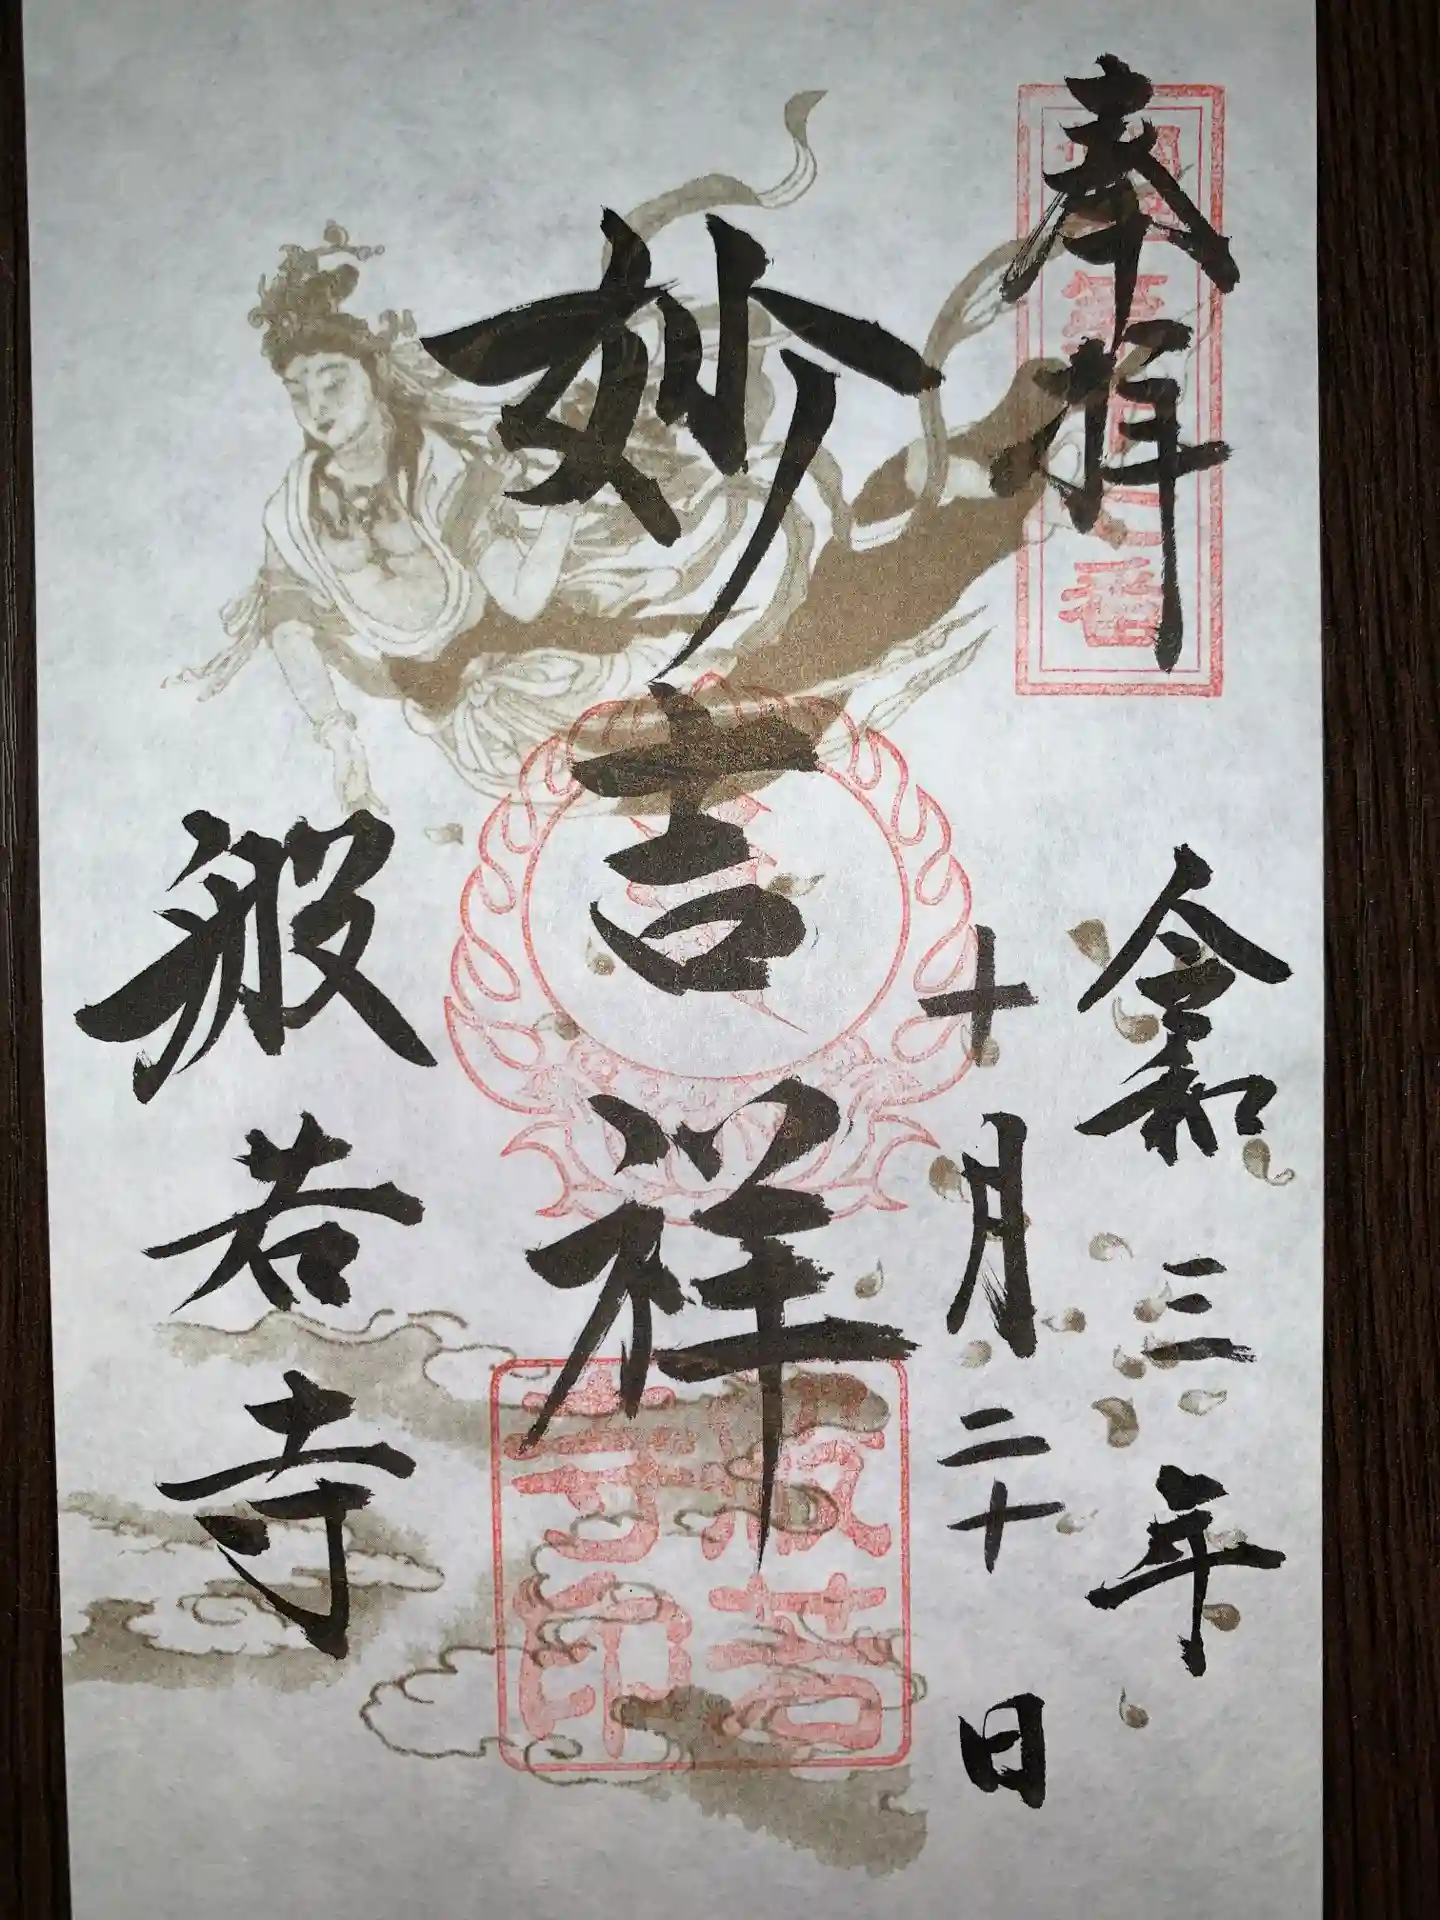 奉拝
令和三年
十月二十日
妙吉祥
般若寺
般若
寺印